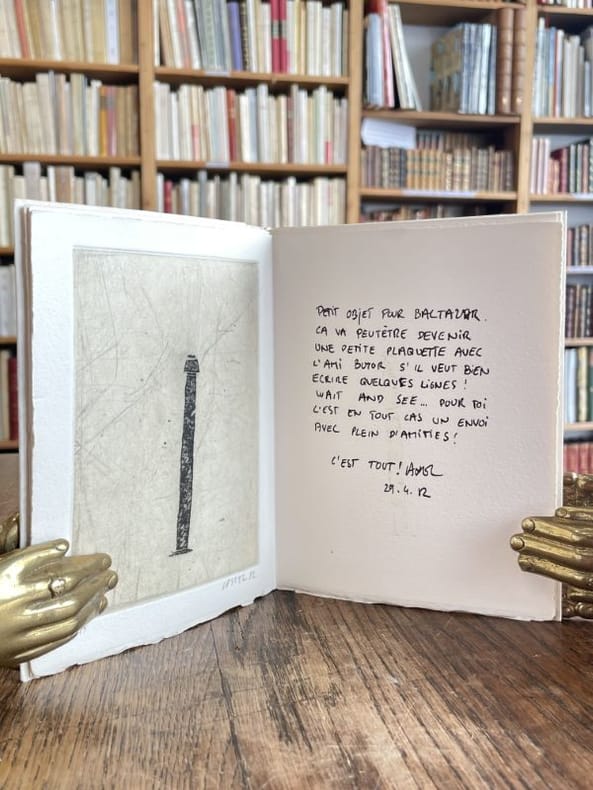 PETIT OBJET POUR BALTAZAR.
CA VA PEUTÊTRE DEVENIR
UNE PETITE PLAQUETTE AVEC
L'AMI BUTOR S'IL VEUT BIEN
ECRIRE QUELQUES LIGNES !
WAIT AND SEE... POUR TOI
C'EST EN TOUT CAS UN ENVOI
AVEC PLEIN D'AMITIES !
C'EST TOUT !
29.4.12